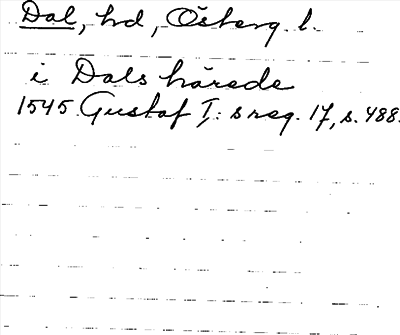 Dal, hd, Österg. l.
i Dals härede
1545 Gustaf I: s reg. 17, s. 488.